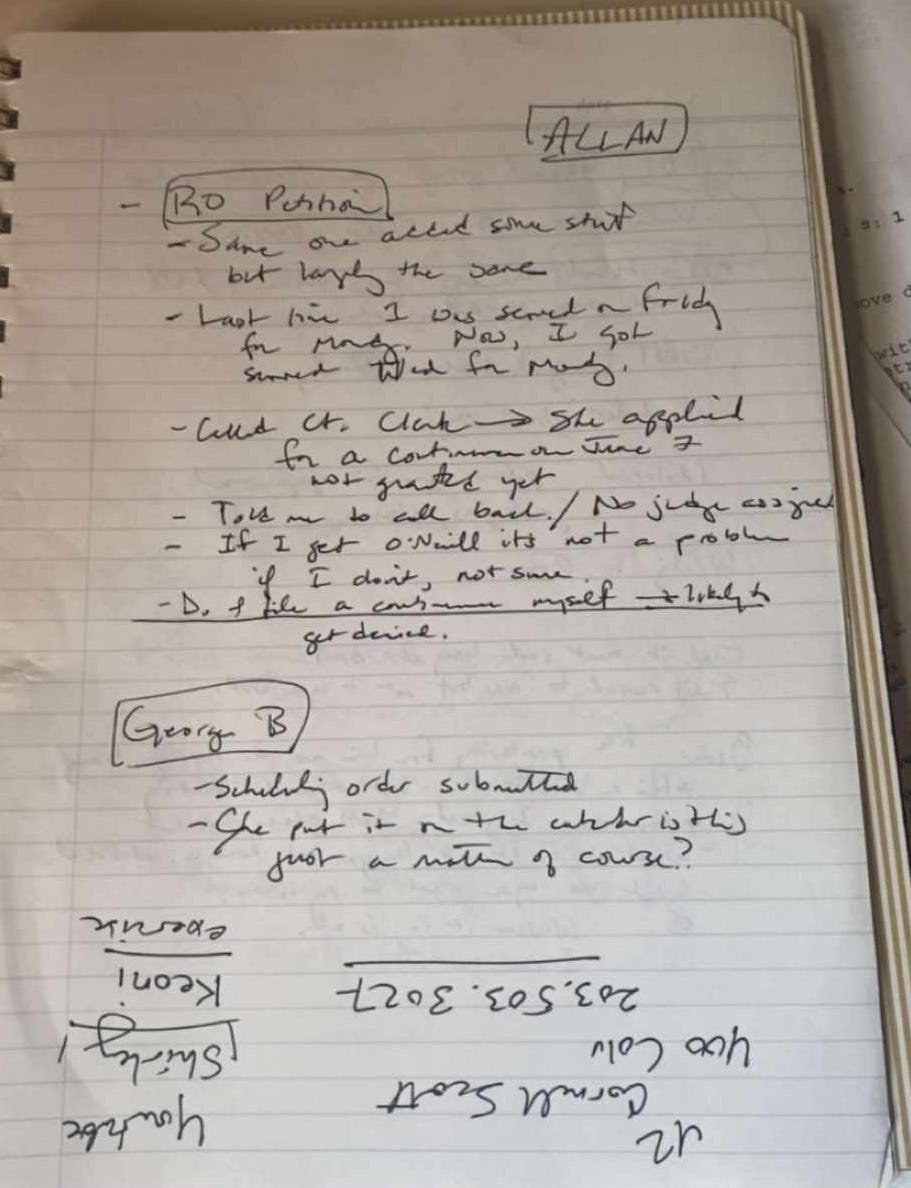 ALLAN
- RO Petition
- Same one added some stuff
but largely the same
- Last time I was served on Friday
for Monday. Now, I got
served Wed for Monday.
- Called Ct. Clerk → She applied
for a continuance on June 7
not granted yet
- Told me to call back. / No judge assigned
- If I get O'Neill its not a problem
if I don't, not sure.
- D. I file a continuance myself → likely to
get denied.
George B
- Scheduling order submitted
- She put it on the calendar is this
just a matter of course?
42
Cornell Scott
400 Colu
203.503.3027
Youtube
Shirley
Keoni
exercise